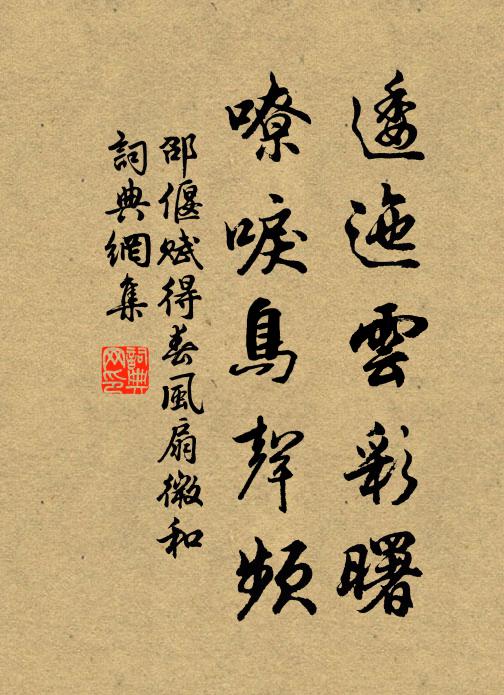 逶迤雲彩曙
嘹唳鳥聲頻
邵偃賦得春風扇微和
詞典網集
詞典网印